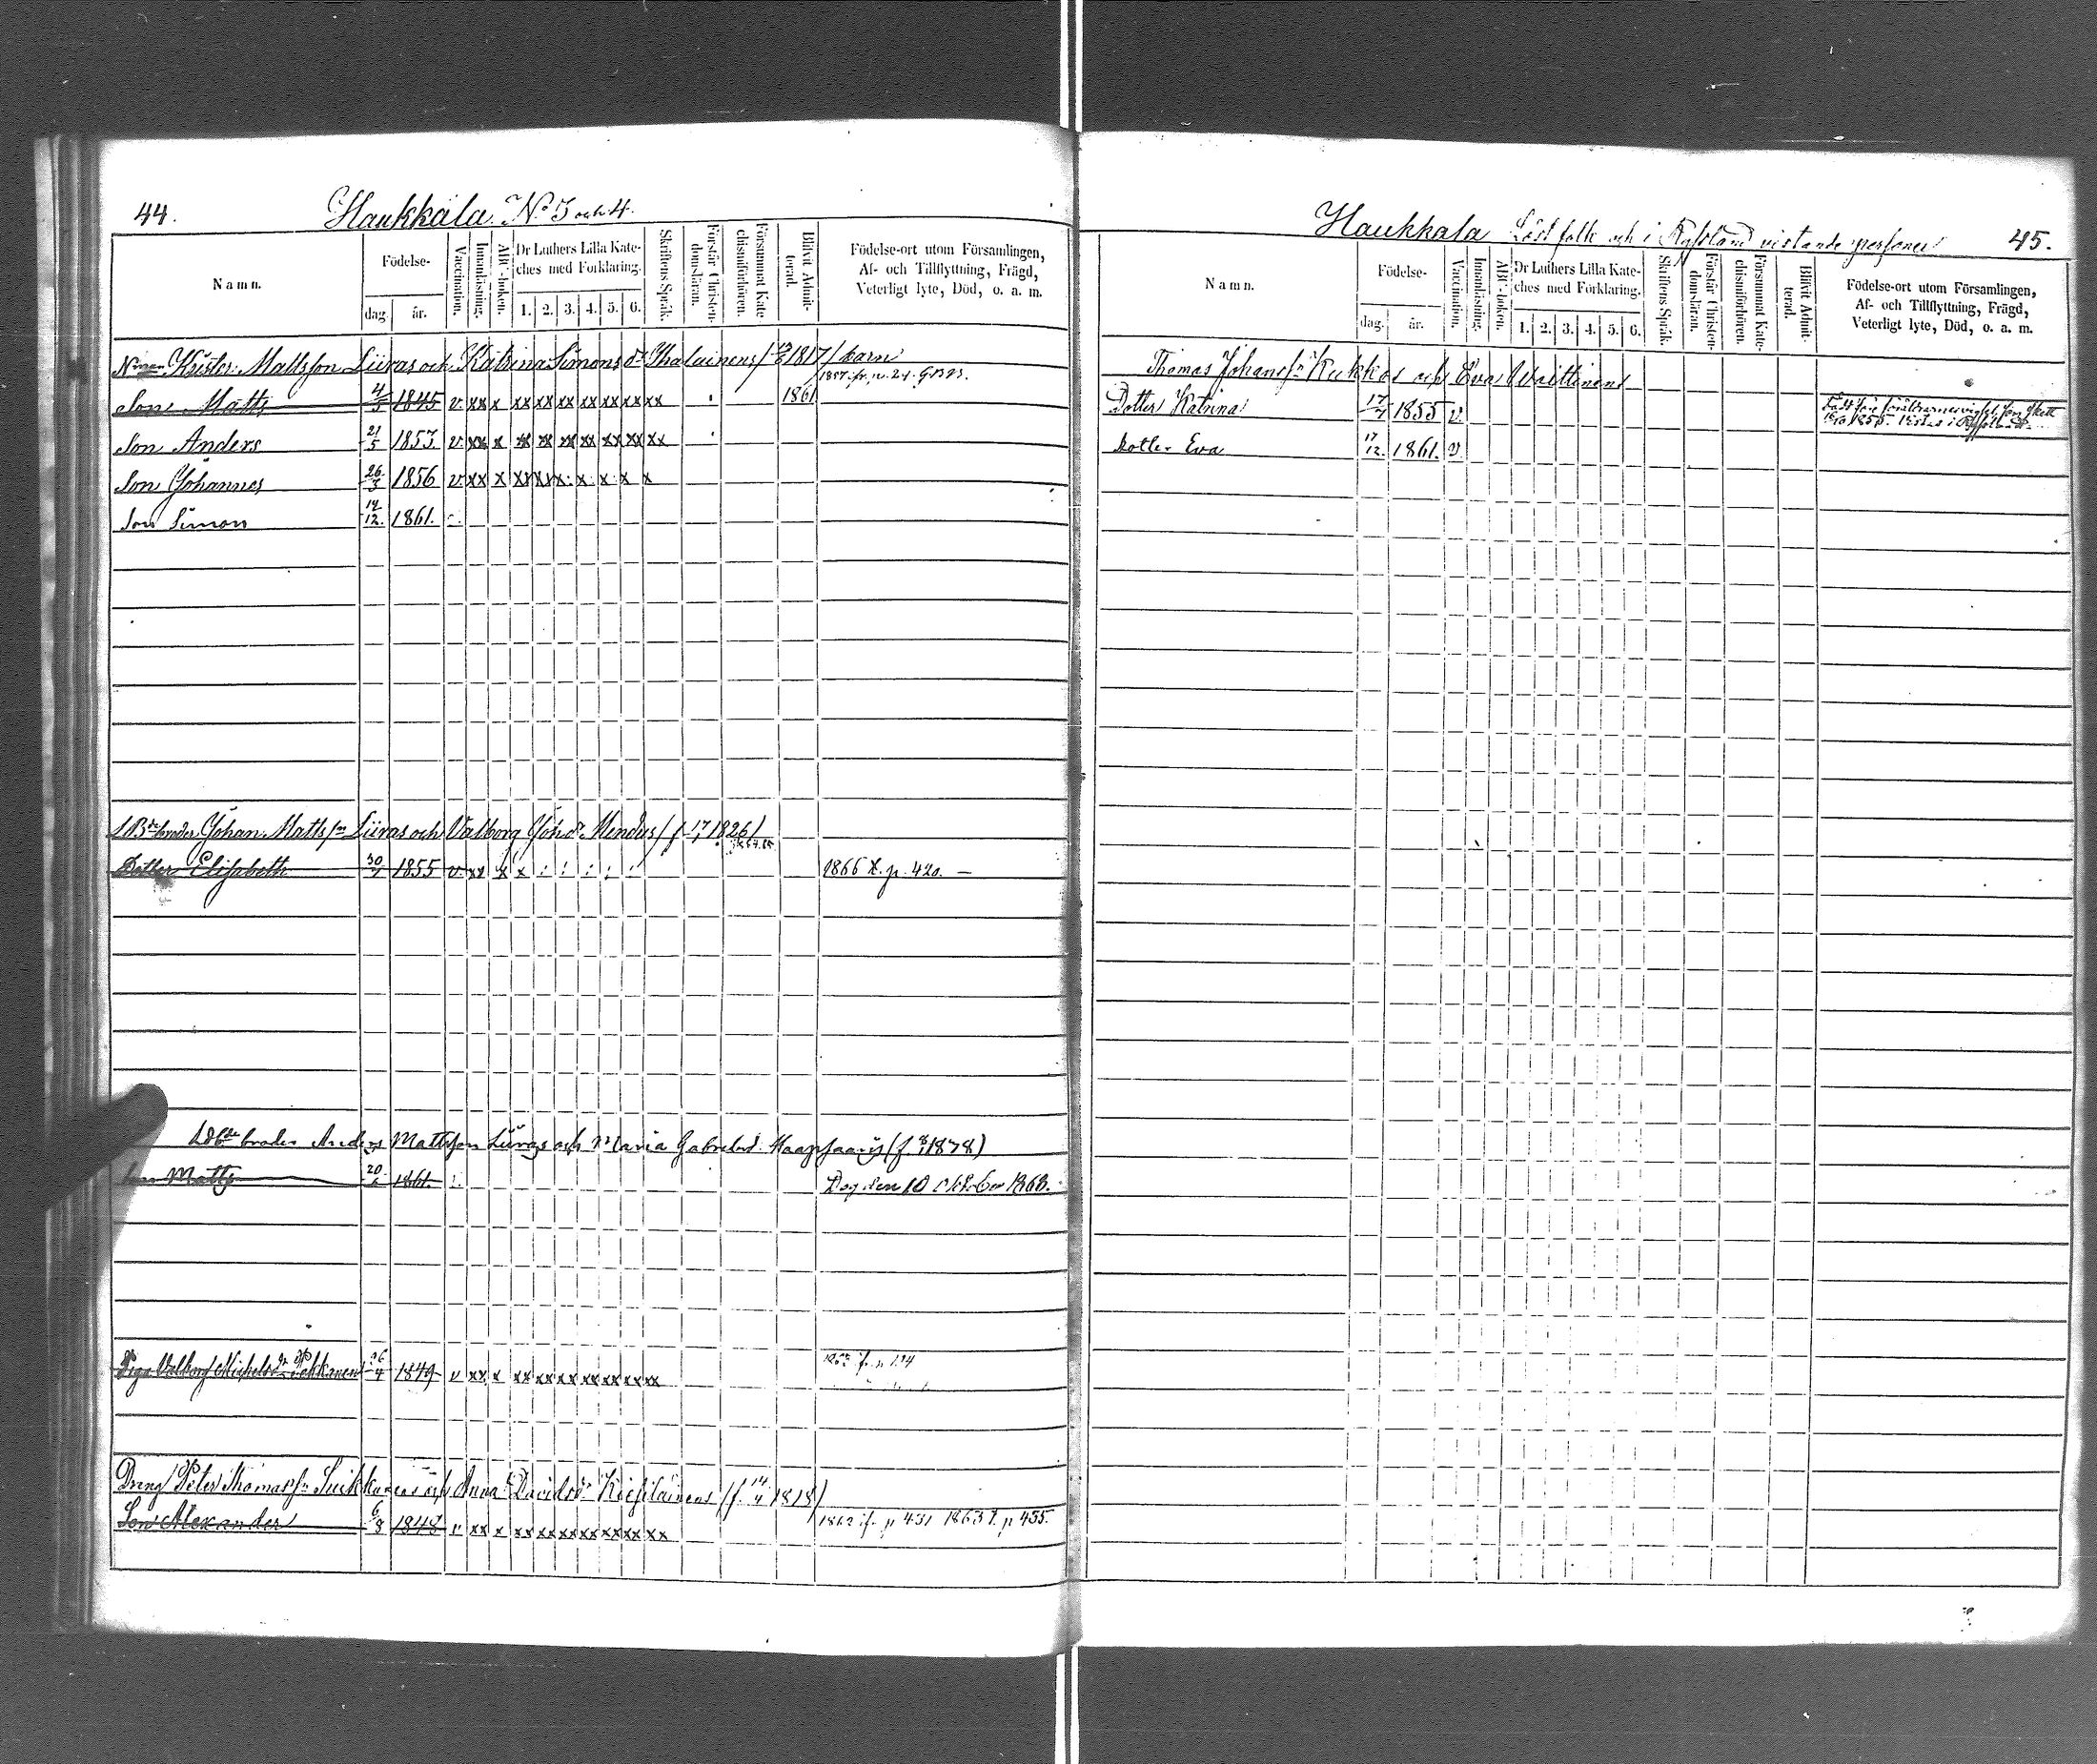 44.
Haukkala. No 3 och 4.
Namn.
Födelse-
dag.
år.
Vaccination.
Innanläsning.
ABC-boken.
Dr Luthers Lilla Kate-
ches med Förklaring.
1. 2. 3. 4. 5. 6.
Skriftens Språk.
Förstår Christen-
domsläran.
Försummat Kate-
chismiförhören.
Blifvit Admit-
terad.
Födelse-ort utom Församlingen,
Af- och Tillflyttning, Frägd,
Veterligt lyte, Död, o. a. m.
Christer Mattsson Liiras och Katrina Simonsdr Ihalainens / 1817 / barn
Son Matts 4/5 1845 v xx x xx xx xx xx xx xx xx 1861
Son Anders 21/5 1853 v xx x xx xx xx xx xx xx xx
Son Johannes 26/3 1856 v xx x xx xx x x x x x
Son Simon 14/12 1861.
Johan Mattsson Liiras och Valborg Joh.dr Mendus / f 1826 /
Dotter Elisabeth 30/1 1855 v xx x x : : : : : 1866 t. p. 420. —
broder Anders Mattsson Liiras och Maria Gabrielsd. Haapsaaris (f 1838)
Son Matts 20/6 1861. Dog den 10 Oktober 1868.
Piga Valborg Michelsdr Pekkanen 26/4 1849 v xx x xx xx xx xx xx xx xx
Dräng Peter Thomasson Suikkanens och Anna Davidsdr Kiesiläinens (f. 14/4 1818)
Son Alexander 6/8 1848 v xx x xx xx xx xx xx xx xx 1862 if. p 431 1863 t. p 455.
Haukkala Löst folk och i Ryssland vistande personer
45.
Namn.
Födelse-
dag.
år.
Vaccination.
Innanläsning.
ABC-boken.
Dr Luthers Lilla Kate-
ches med Förklaring.
1. 2. 3. 4. 5. 6.
Skriftens Språk.
Förstår Christen-
domsläran.
Försummat Kate-
chismiförhören.
Blifvit Admit-
terad.
Födelse-ort utom Församlingen,
Af- och Tillflyttning, Frägd,
Veterligt lyte, Död, o. a. m.
Thomas Johansson Kukkos och Eva Voittinens
Dotter Katrina 17/4 1855 v.
Född före föräldrarnes vigsel, som skett
1855. Vistas i Ryssland.
Dotter Eva 17/12 1861. v.